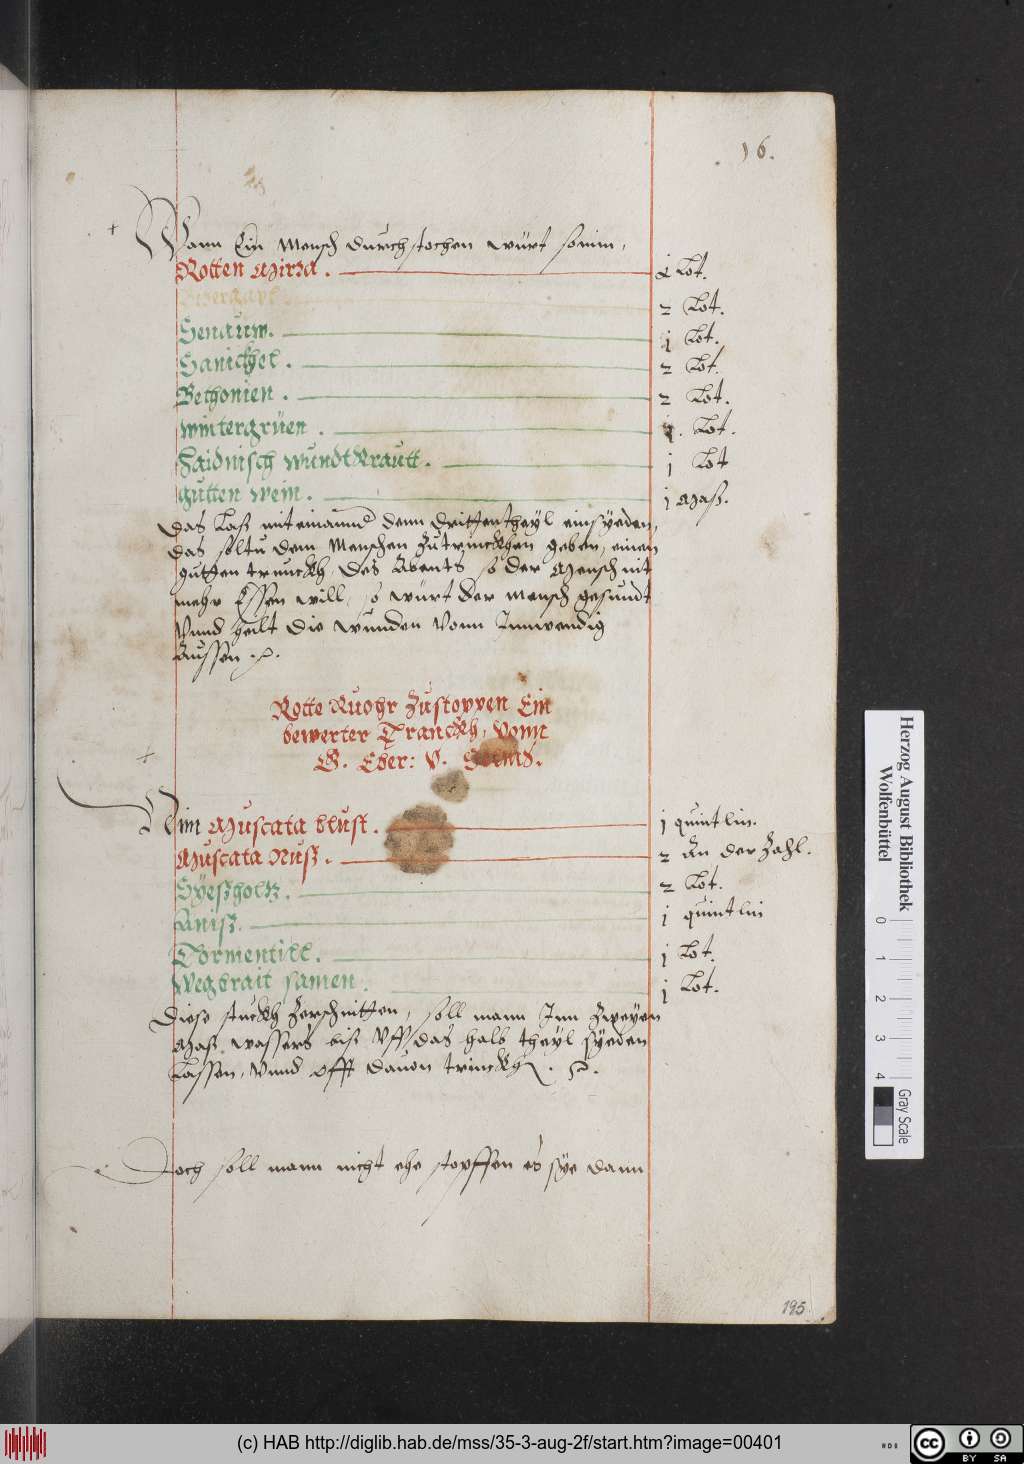 16.
Wann Ein Mensch durchstochen würt so nim,
Rotten Mirra. 1 Lot.
Bibergayl. 2 Lot.
Senauw. 1 Lot.
Sanickhel. 2 Lot.
Bethonien. 2 Lot.
Wintergrüen. 1. Lot.
Haidnisch WundtKrautt. 1 Lot
gutten Wein. 1 Maß.
das Laß mit einannd denn drittentheyl einsÿeden,
das soltu dem Menschen Zutrinckhen geben, einen
gutten trunckh, des Abents so der Mensch nit
mehr Essen will, so würt der mensch gesundt
Vnnd heilt die wunden Vonn Innwendig
Aussen.
Rotte Ruohr Zustopven Ein
bewerter Tranckh, Vonn
G. Eber: V. Solms.
Nim Muscata blust. 1 quintlin.
Muscata Nuß. 2 An der Zahl.
Sÿeßholtz. 2 Lot.
Aniß. 1 quintlin
Tormentill. 1 Lot.
Wegbrait samen. 1 Lot.
Diese stuckh Zerschnitten, soll mann Inn Zweyen
Maß wassers biß Vff das halb theyl sÿeden
Lassen, Vnnd offt dauon trinckhen.
Doch soll mann nicht ehe stopffen es sÿe dann
195
Herzog August Bibliothek
Wolfenbüttel
0 1 2 3 4
Gray Scale
(c) HAB http://diglib.hab.de/mss/35-3-aug-2f/start.htm?image=00401
cc BY SA